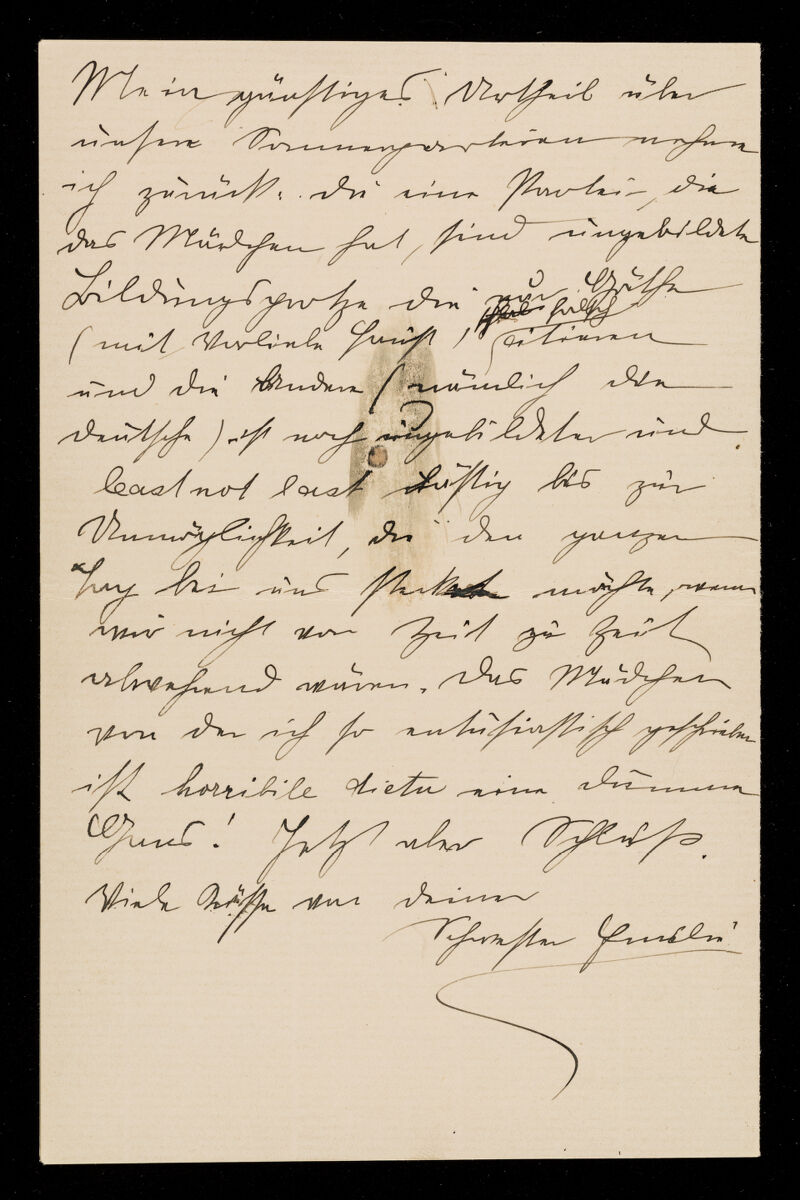 Mein günstiges Urtheil über
unsere Sommerparteien nehme
ich zurück. Die eine Partei, die
das Mädchen hat, sind ungebildete
Bildungsprotze die nur Göthe
(mit Vorliebe Faust), falsch citieren
und die Andere (nämlich die
deutsche) ist noch ungebildeter und
least not last lästig bis zur
Unmöglichkeit, die den ganzen
Tag bei uns stecken möchte, wenn
wir nicht von Zeit zu Zeit
abwehrend wären. Das Mädchen
von der ich so entusiastisch geschrieben
ist horribile dictu eine dumme
Gans! Jetzt aber Schluß.
Viele Küsse von deiner
Schwester Emilie